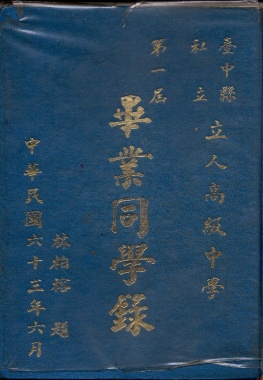 臺中縣
私立
立人高級中學
第一屆
畢業同學錄
林柏榕 題
中華民國六十三年六月